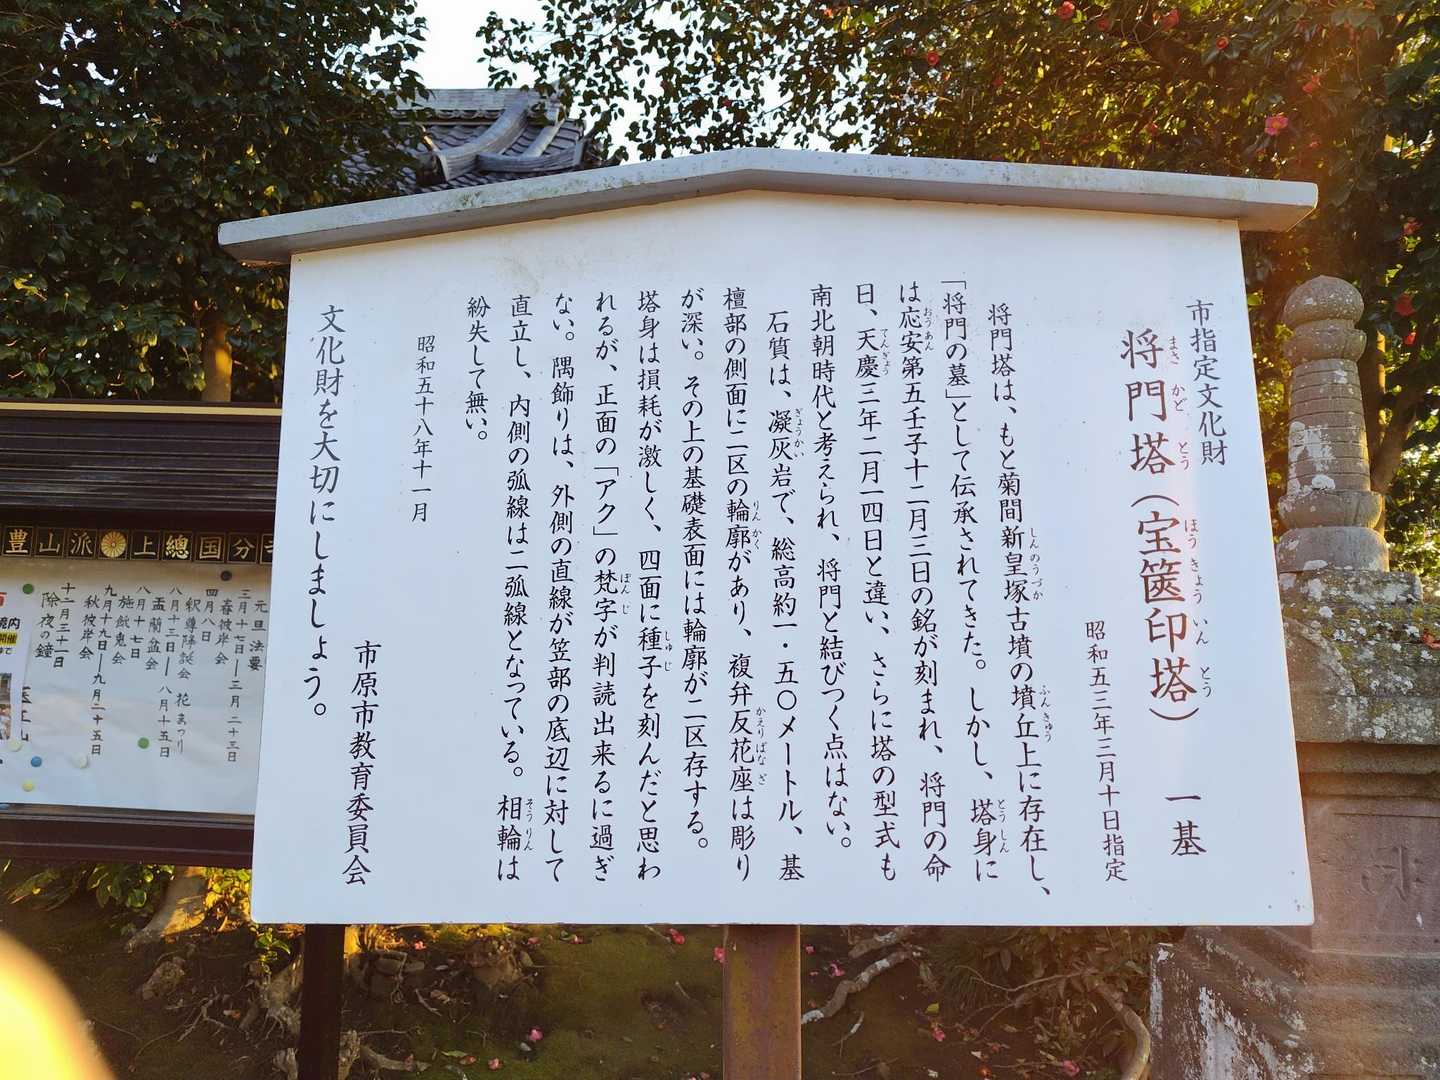 市指定文化財
将門塔（宝篋印塔）　一基
まさ かど とう　ほう きょう いん とう
昭和五三年三月十日指定
将門塔は、もと菊間新皇塚古墳の墳丘上に存在し、
しんのうづか　ふんきゅう
「将門の墓」として伝承されてきた。しかし、塔身に
とうしん
は応安第五壬子十二月三日の銘が刻まれ、将門の命
おうあん
日、天慶三年二月一四日と違い、さらに塔の型式も
てんぎょう
南北朝時代と考えられ、将門と結びつく点はない。
石質は、凝灰岩で、総高約一・五〇メートル、基
ぎょうかい
檀部の側面に二区の輪廓があり、複弁反花座は彫り
りんかく　かえりばなざ
が深い。その上の基礎表面には輪廓が二区存する。
塔身は損耗が激しく、四面に種子を刻んだと思わ
しゅじ
れるが、正面の「アク」の梵字が判読出来るに過ぎ
ぼんじ
ない。隅飾りは、外側の直線が笠部の底辺に対して
直立し、内側の弧線は二弧線となっている。相輪は
そうりん
紛失して無い。
昭和五十八年十一月
市原市教育委員会
文化財を大切にしましょう。
豊山派 上總国分寺
元旦法要
三月十七日―三月二十三日
春彼岸会
四月八日
釈尊降誕会　花まつり
八月十三日―八月十五日
盂蘭盆会
八月十七日
施餓鬼会
九月十九日―九月二十五日
秋彼岸会
十二月三十一日
除夜の鐘
境内
開催